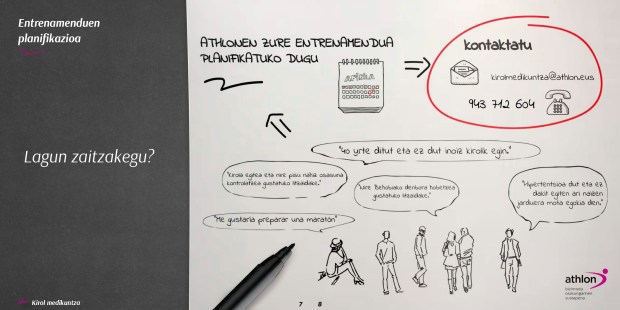 Entrenamenduen
planifikazioa
Lagun zaitzakegu?
Kirol medikuntza
ATHLONEN ZURE ENTRENAMENDUA
PLANIFIKATUKO DUGU
kontaktatu
kirolmedikuntza@athlon.eus
943 712 604
"40 urte ditut eta ez dut inoiz kirolik egin."
"Kirola egitea eta nire pisu
kontrolatzea gustatuko litzaidake."
"Nire Behobiako denbora hobetzea
gustatuko litzaidake."
"Hipertentsioa dut eta ez
dakit egiten ari naizen
jarduera mota egokia den."
"Me gustaría preparar una maratón"
7 8
athlon